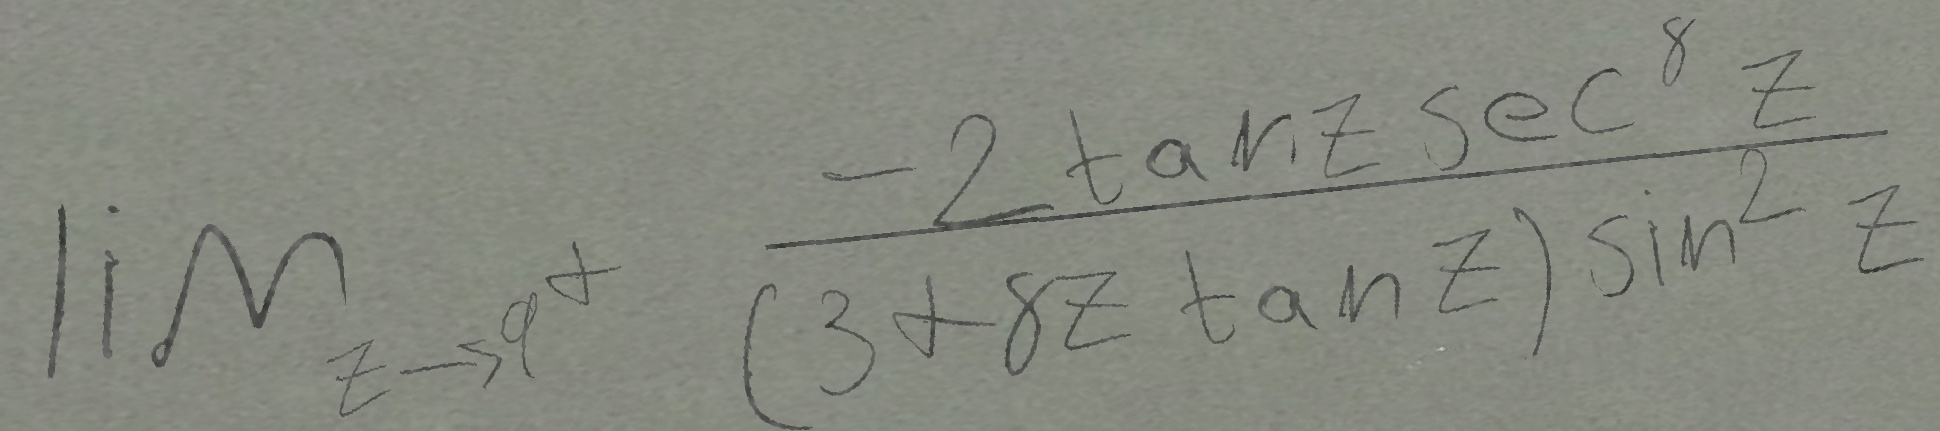 \lim_{z \to 9^+} \frac{-2 \tan z \sec^8 z}{(3+8z \tan z) \sin^2 z}